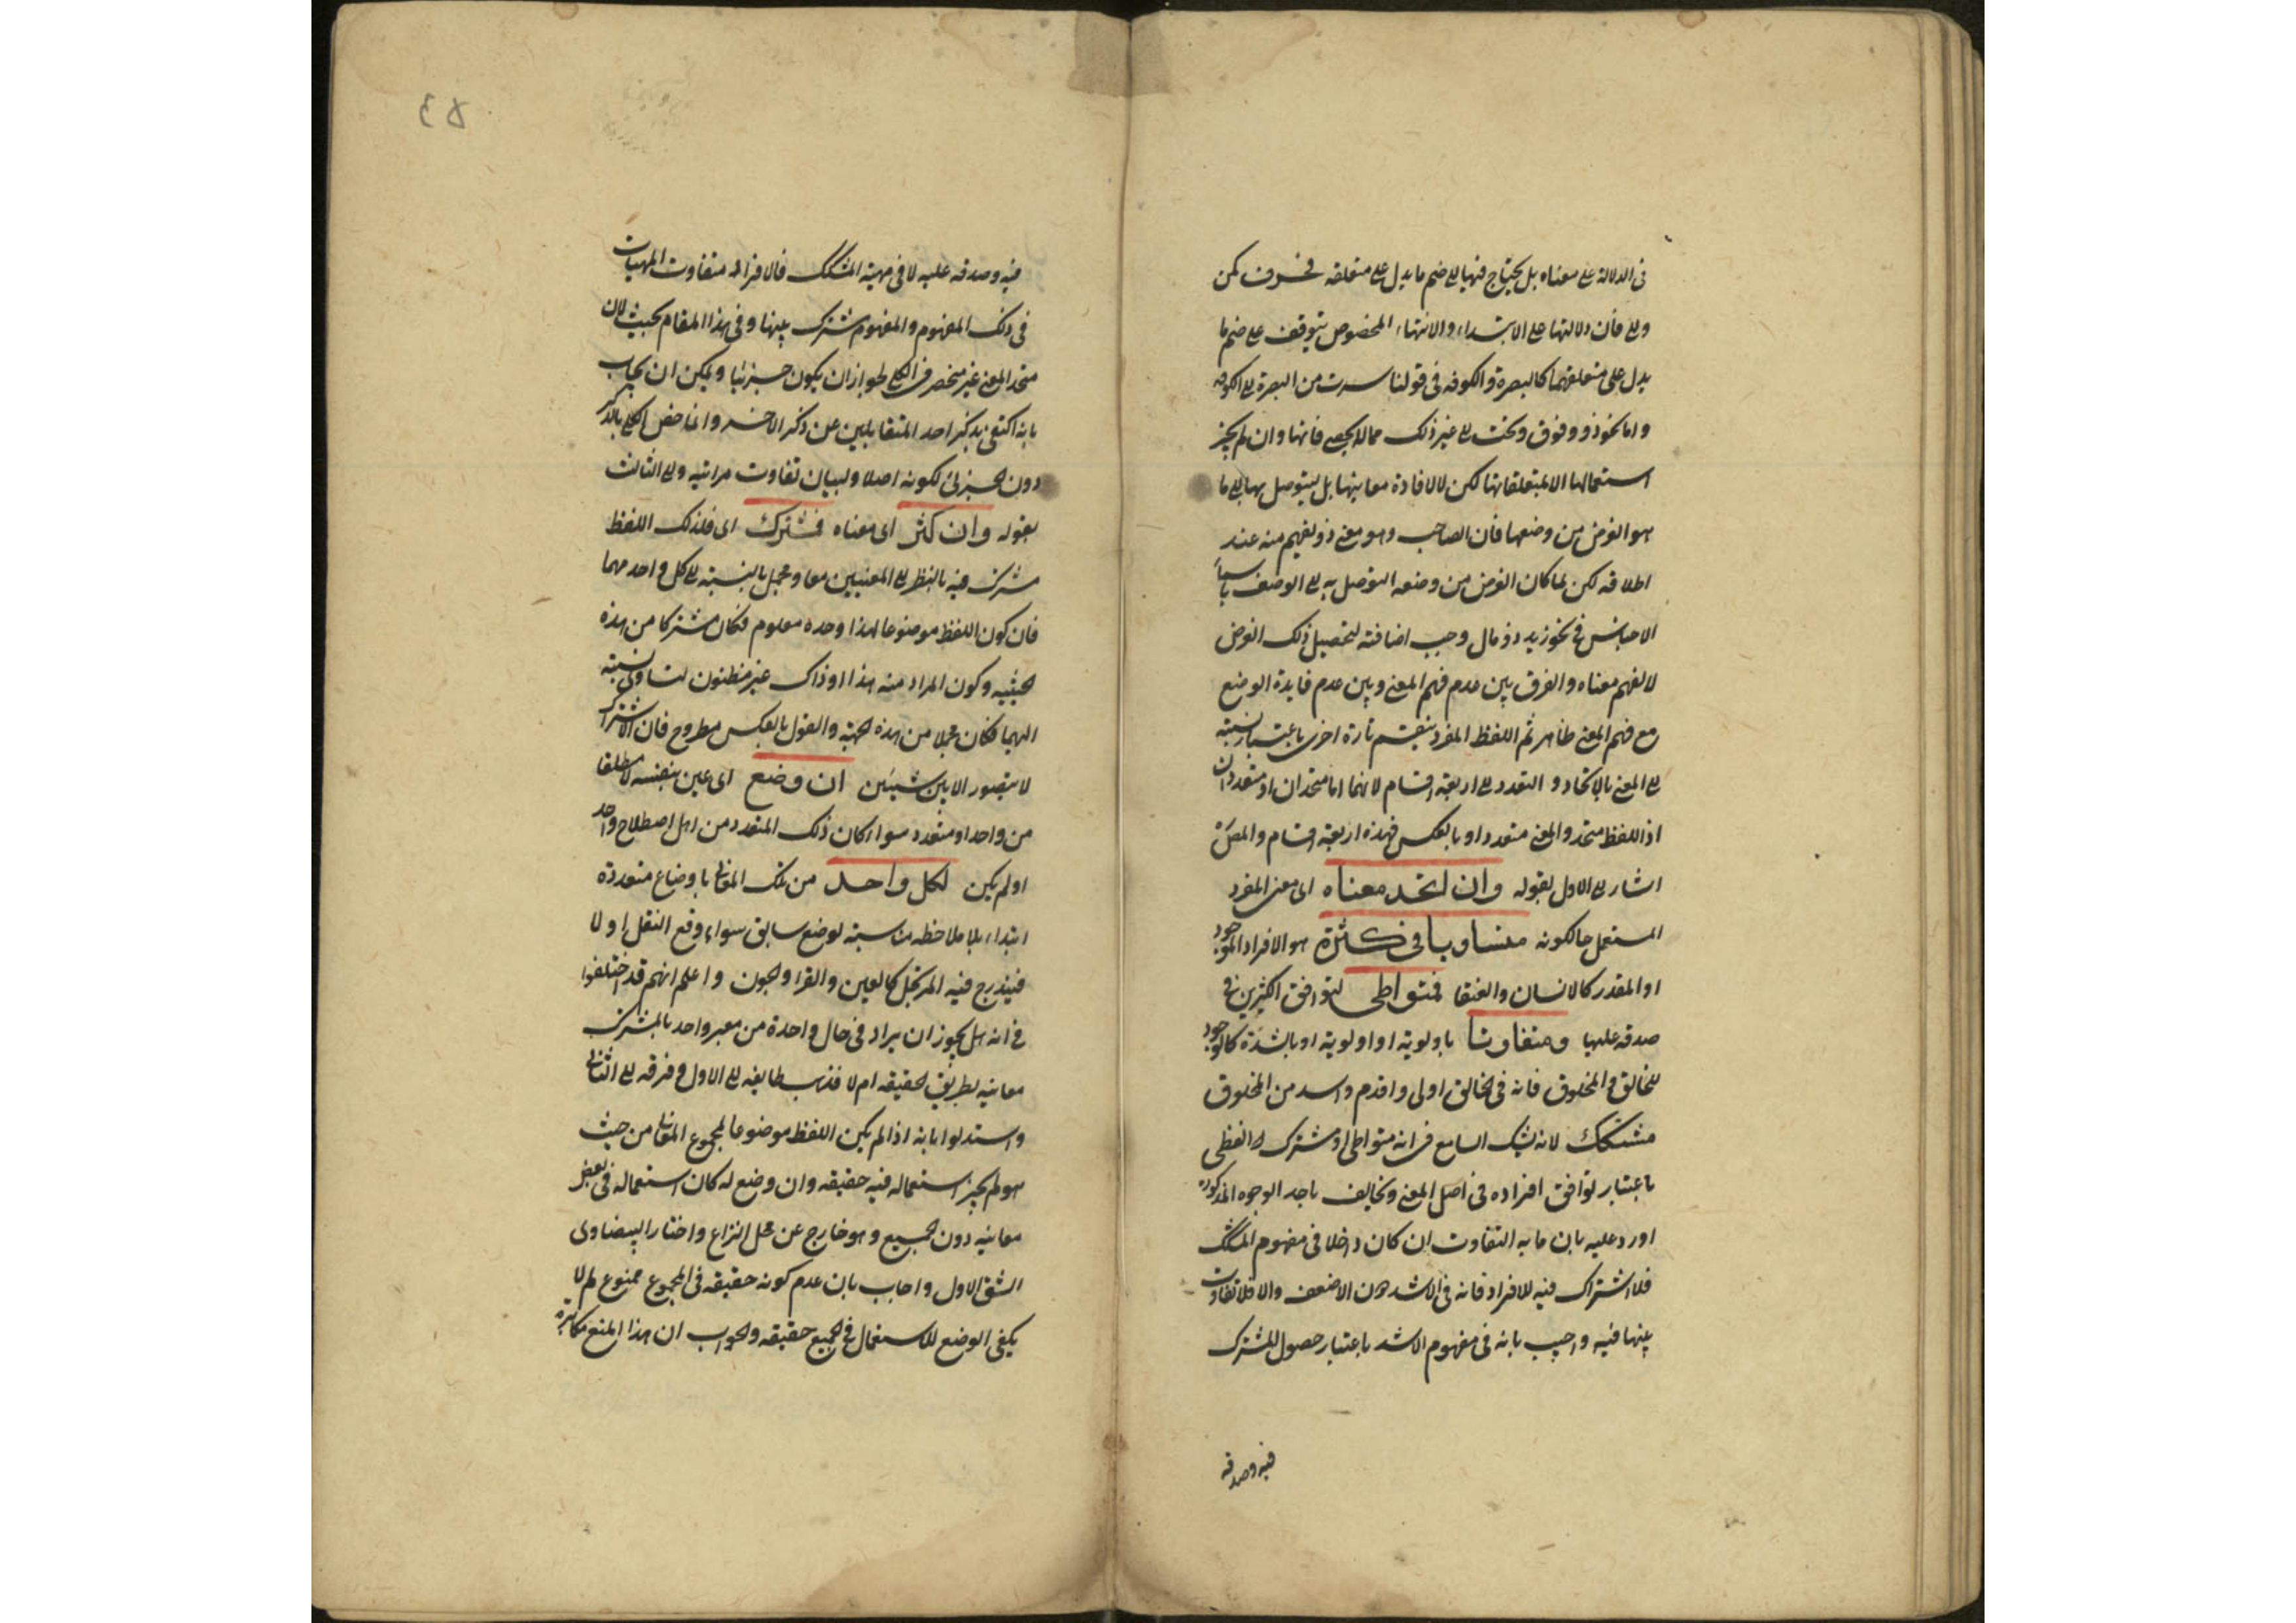 فى الدلالة على معناه بل يحتاج فيها الى ضم ما يدل على متعلقه فحرف كمن
والى فان دلالتها على الابتداء والانتهاء المخصوص يتوقف على ضم ما
يدل على متعلقهما كالبصرة والكوفه فى قولنا سرت من البصرة الى الكوفه
واما نحو ذو وفوق وتحت الى غير ذلك مما لا يحصى فانها وان لم يجز
استعمالها الا بمتعلقاتها لكن لا لافادة معانيها بل ليتوصل بها الى ما
هو الغرض من وضعها فان الصاحب وهو معنى ذو يفهم منه عند
اطلاقه لكن لما كان الغرض من وضعه التوصل به الى الوصف باسماء
الاجناس فى نحو زيد ذو مال وجب اضافته لتحصيل ذلك الغرض
لا لفهم معناه والفرق بين عدم فهم المعنى وبين عدم فايدة الوضع
مع فهم المعنى ظاهر ثم اللفظ المفرد ينقسم تارة اخرى باعتبار نسبته
الى المعنى بالاتحاد والتعدد الى اربعة اقسام لانهما اما متحدان او متعددان
اذ اللفظ متحد والمعنى متعدد او بالعكس فهذه اربعة اقسام والمصَ
اشار الى الاول بقوله وان اتحد معناه اى معنى المفرد
المستعمل حالكونه متساويا فى كثرة هو الافراد الموجود
او المقدر كالانسان والعنقا فمتواطى لتوافق اكثرين فى
صدقه عليها ومتفاوتا باولوية او اولوية او بالشدة كالوجود
للخالق والمخلوق فانه فى الخالق اولى واقدم واشد من المخلوق
مشكك لانه يشك السامع فى انه متواطى او مشترك لفظى
باعتبار توافق افراده فى اصل المعنى وتخالف باحد الوجوه المذكوره
اورد عليه بان ما به التفاوت ان كان داخلا فى مفهوم المشكك
فلا اشتراك فيه للافراد فانه فى الاشد دون الاضعف والا فلا تفاوت
بينها فيه واجيب بانه فى مفهوم الاشد باعتبار حصول المشترك
فيه وصدقه
٤٥
فيه وصدقه عليه لا فى مهية المشكك فالافراد متفاوت المهيات
فى ذلك المفهوم والمفهوم مشترك بينها وفى هذا المقام بحيث لان
متحد المعنى غير منحصر فى الكلى لجواز ان يكون جزئيا ويمكن ان يجاب
بانه اكتفى بذكر احد المتقابلين عن ذكر الاخر وانما خص الكلى بالذكر
دون الجزئى لكونه اصلا ولبيان تفاوت مراتبه والى الثالث
بقوله وان كثر اى معناه فمشترك اى فلذلك اللفظ
مشترك فيه بالنظر الى المعنيين معا ومجمل بالنسبة الى كل واحد منهما
فان كون اللفظ موضوعا لهذا وحده معلوم فكان مشتركا من هذه
الحيثيه وكون المراد منه هذا او ذاك غير مظنون لتساوى نسبته
اليهما فكان مجملا من هذه الجهة والقول بالعكس مطروح فان الاشتراك
لا يتصور الا بين شيئين ان وضع اى عين بنفسه لا مطلقا
من واحد او متعدد سواء كان ذلك المتعدد من اهل اصطلاح واحد
او لم يكن لكل واحد من تلك المعانى باوضاع متعددة
ابتداء بلا ملاحظه مناسبته لوضع سابق سواء وقع النقل اولا
فيندرج فيه المرتجل كالعين والقرا والجون واعلم انهم قد اختلفوا
فى انه هل يجوز ان يراد فى حال واحدة من معبر واحد بالمشترك
معانيه بطريق الحقيقه ام لا فذهب طايفه الى الاول وفرقه الى الثانى
واستدلوا بانه اذا لم يكن اللفظ موضوعا لمجموع المعانى من حيث
هو لم يجز استعماله فيه حقيقه وان وضع له كان استعماله فى بعض
معانيه دون الجميع وهو خارج عن محل النزاع واختار البيضاوى
الشق الاول واجاب بان عدم كونه حقيقه فى المجموع ممنوع لم لا
يكفى الوضع للاستعمال فى الجميع حقيقه والجواب ان هذا المنع مكابرة